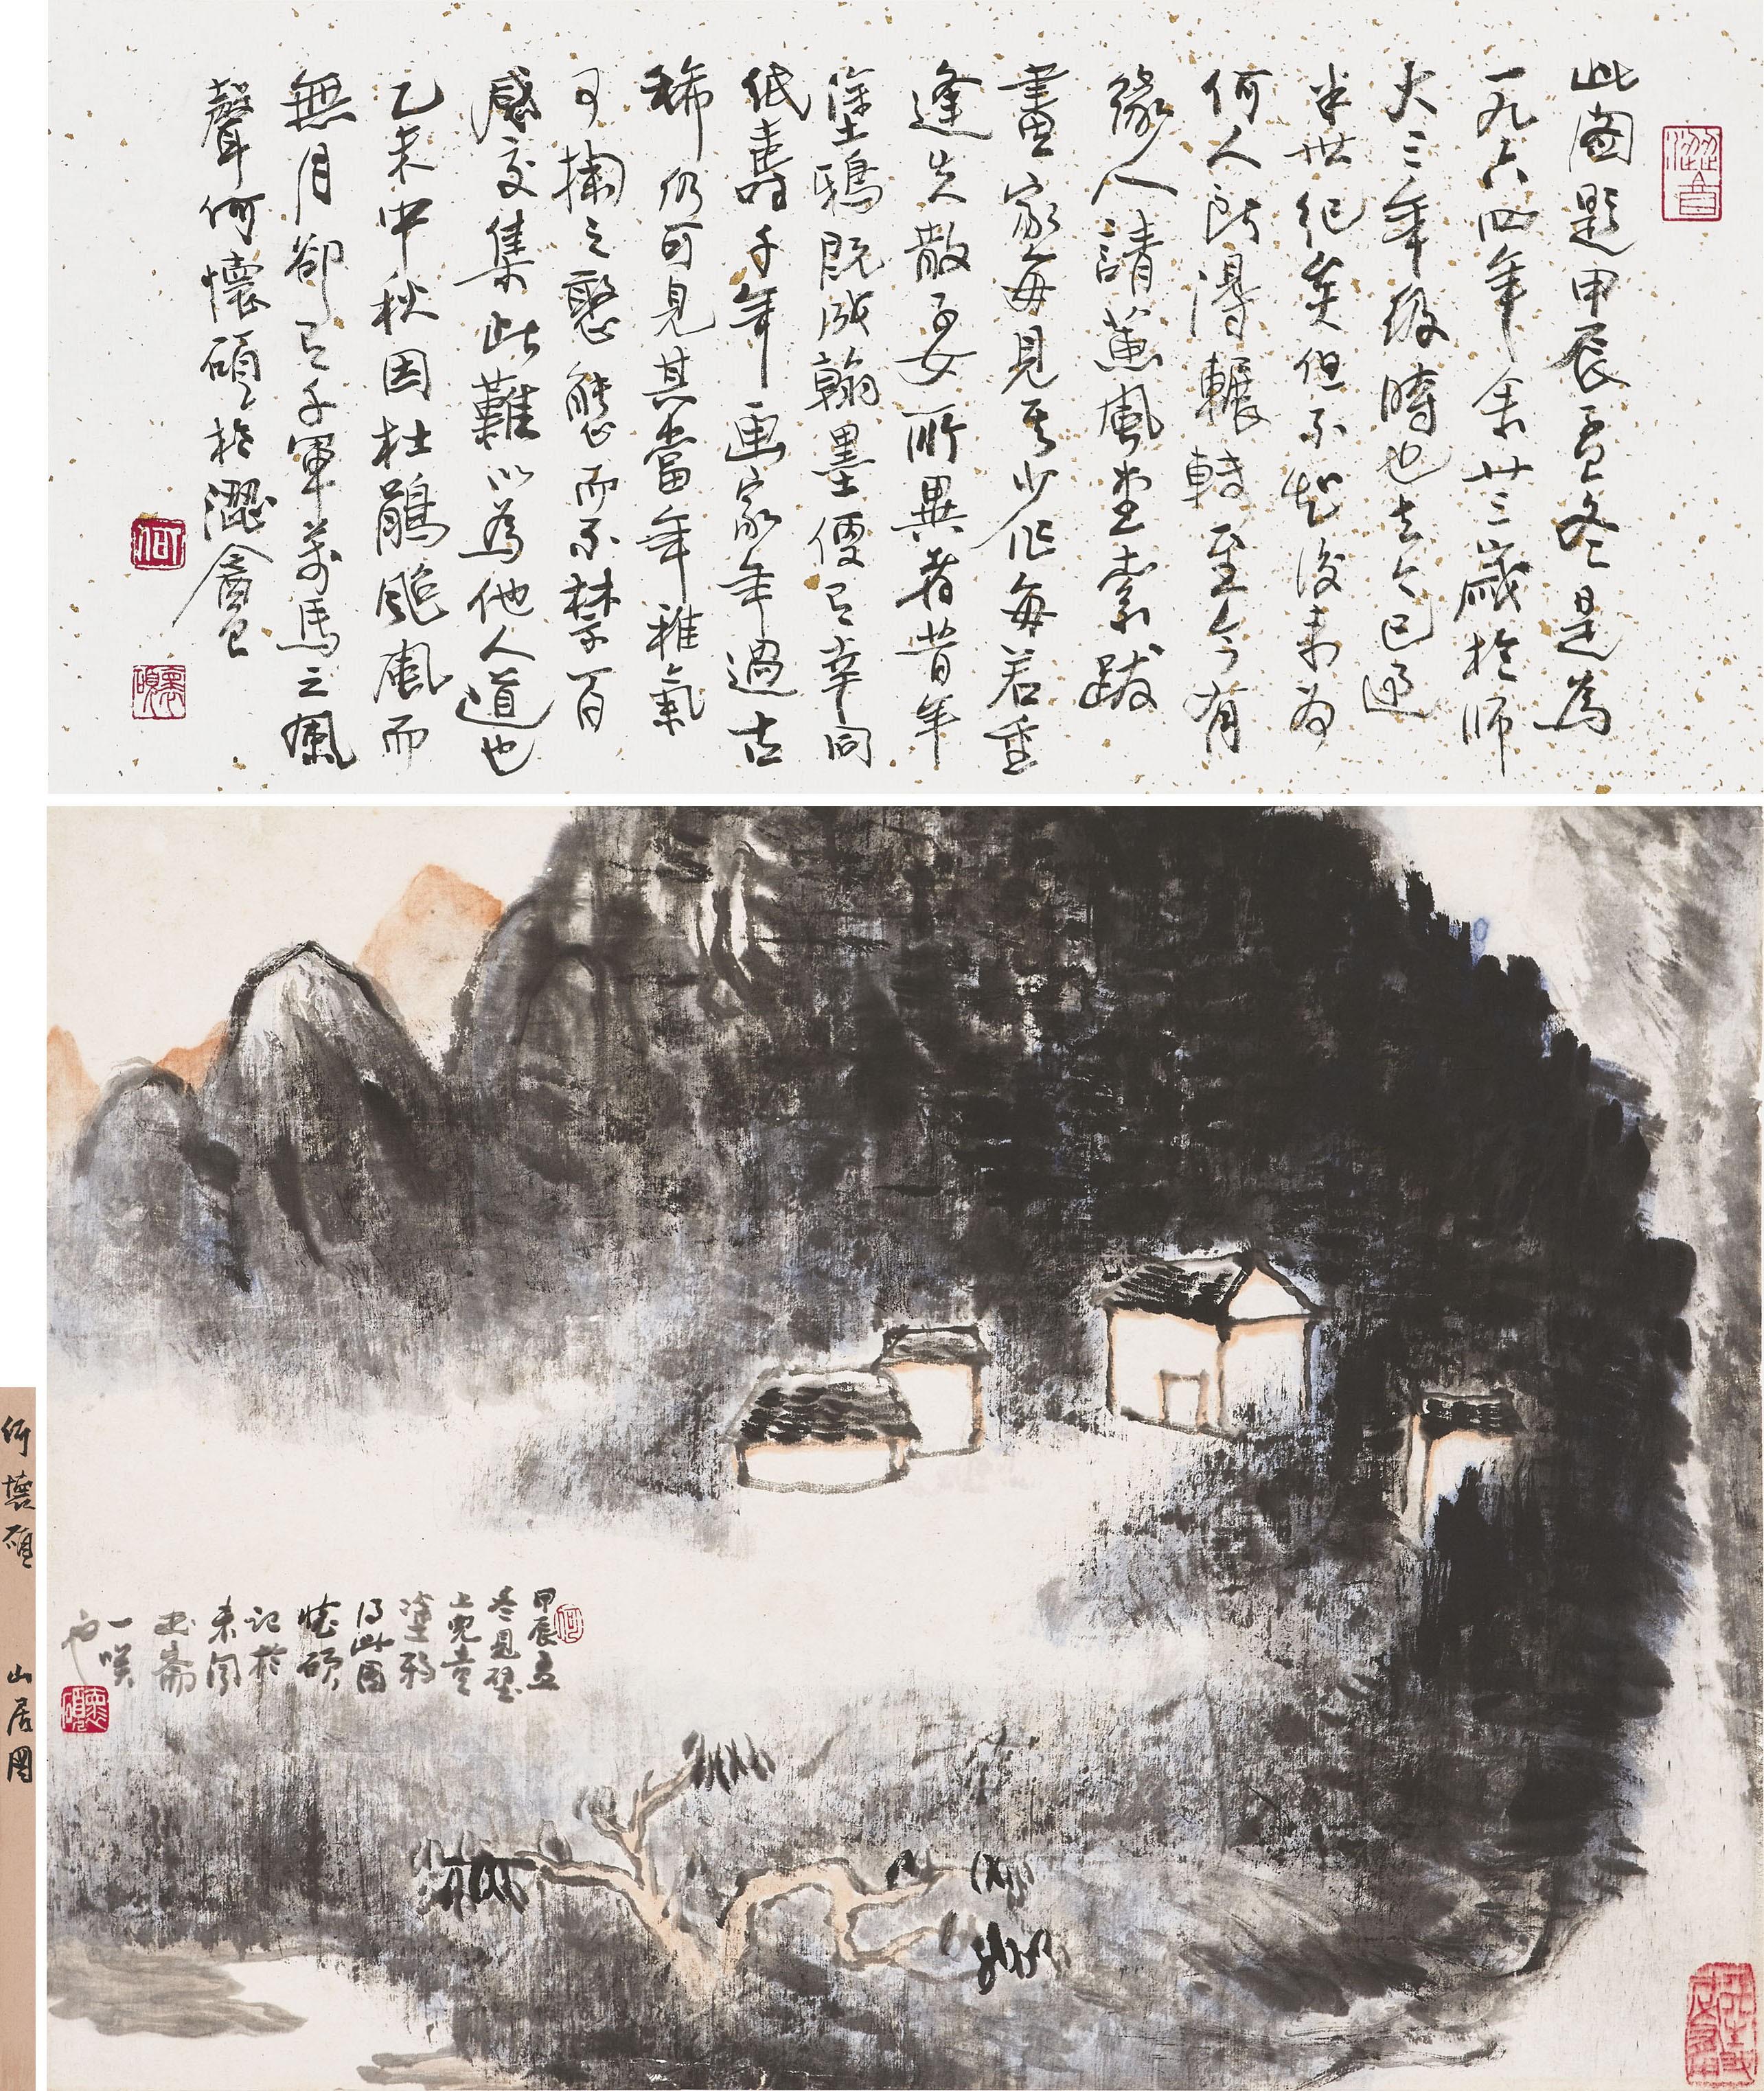 澀音
此圖題甲辰孟冬是為
一九六四年余廿三歲於師
大三年級時也去今已逾
半世紀矣但不知後來為
何人所得輾轉至今有
緣人請蕙風堂索跋
畫家每見其少作每若重
逢失散子女所異者昔年
塗鴉既成翰墨便已幸同
紙壽千年畫家年過古
稀仍可見其當年稚氣
可掬之憨態而不禁百
感交集此難以為他人道也
乙未中秋因杜鵑颱風而
無月卻已千軍萬馬之風
聲何懷碩於澀盦
何
懷碩
甲辰孟
冬見壁
上兒童
塗鴉
得此圖
懷碩
記於
未閑
書齋
一咲
也
何
懷碩
何懷碩 山居圖